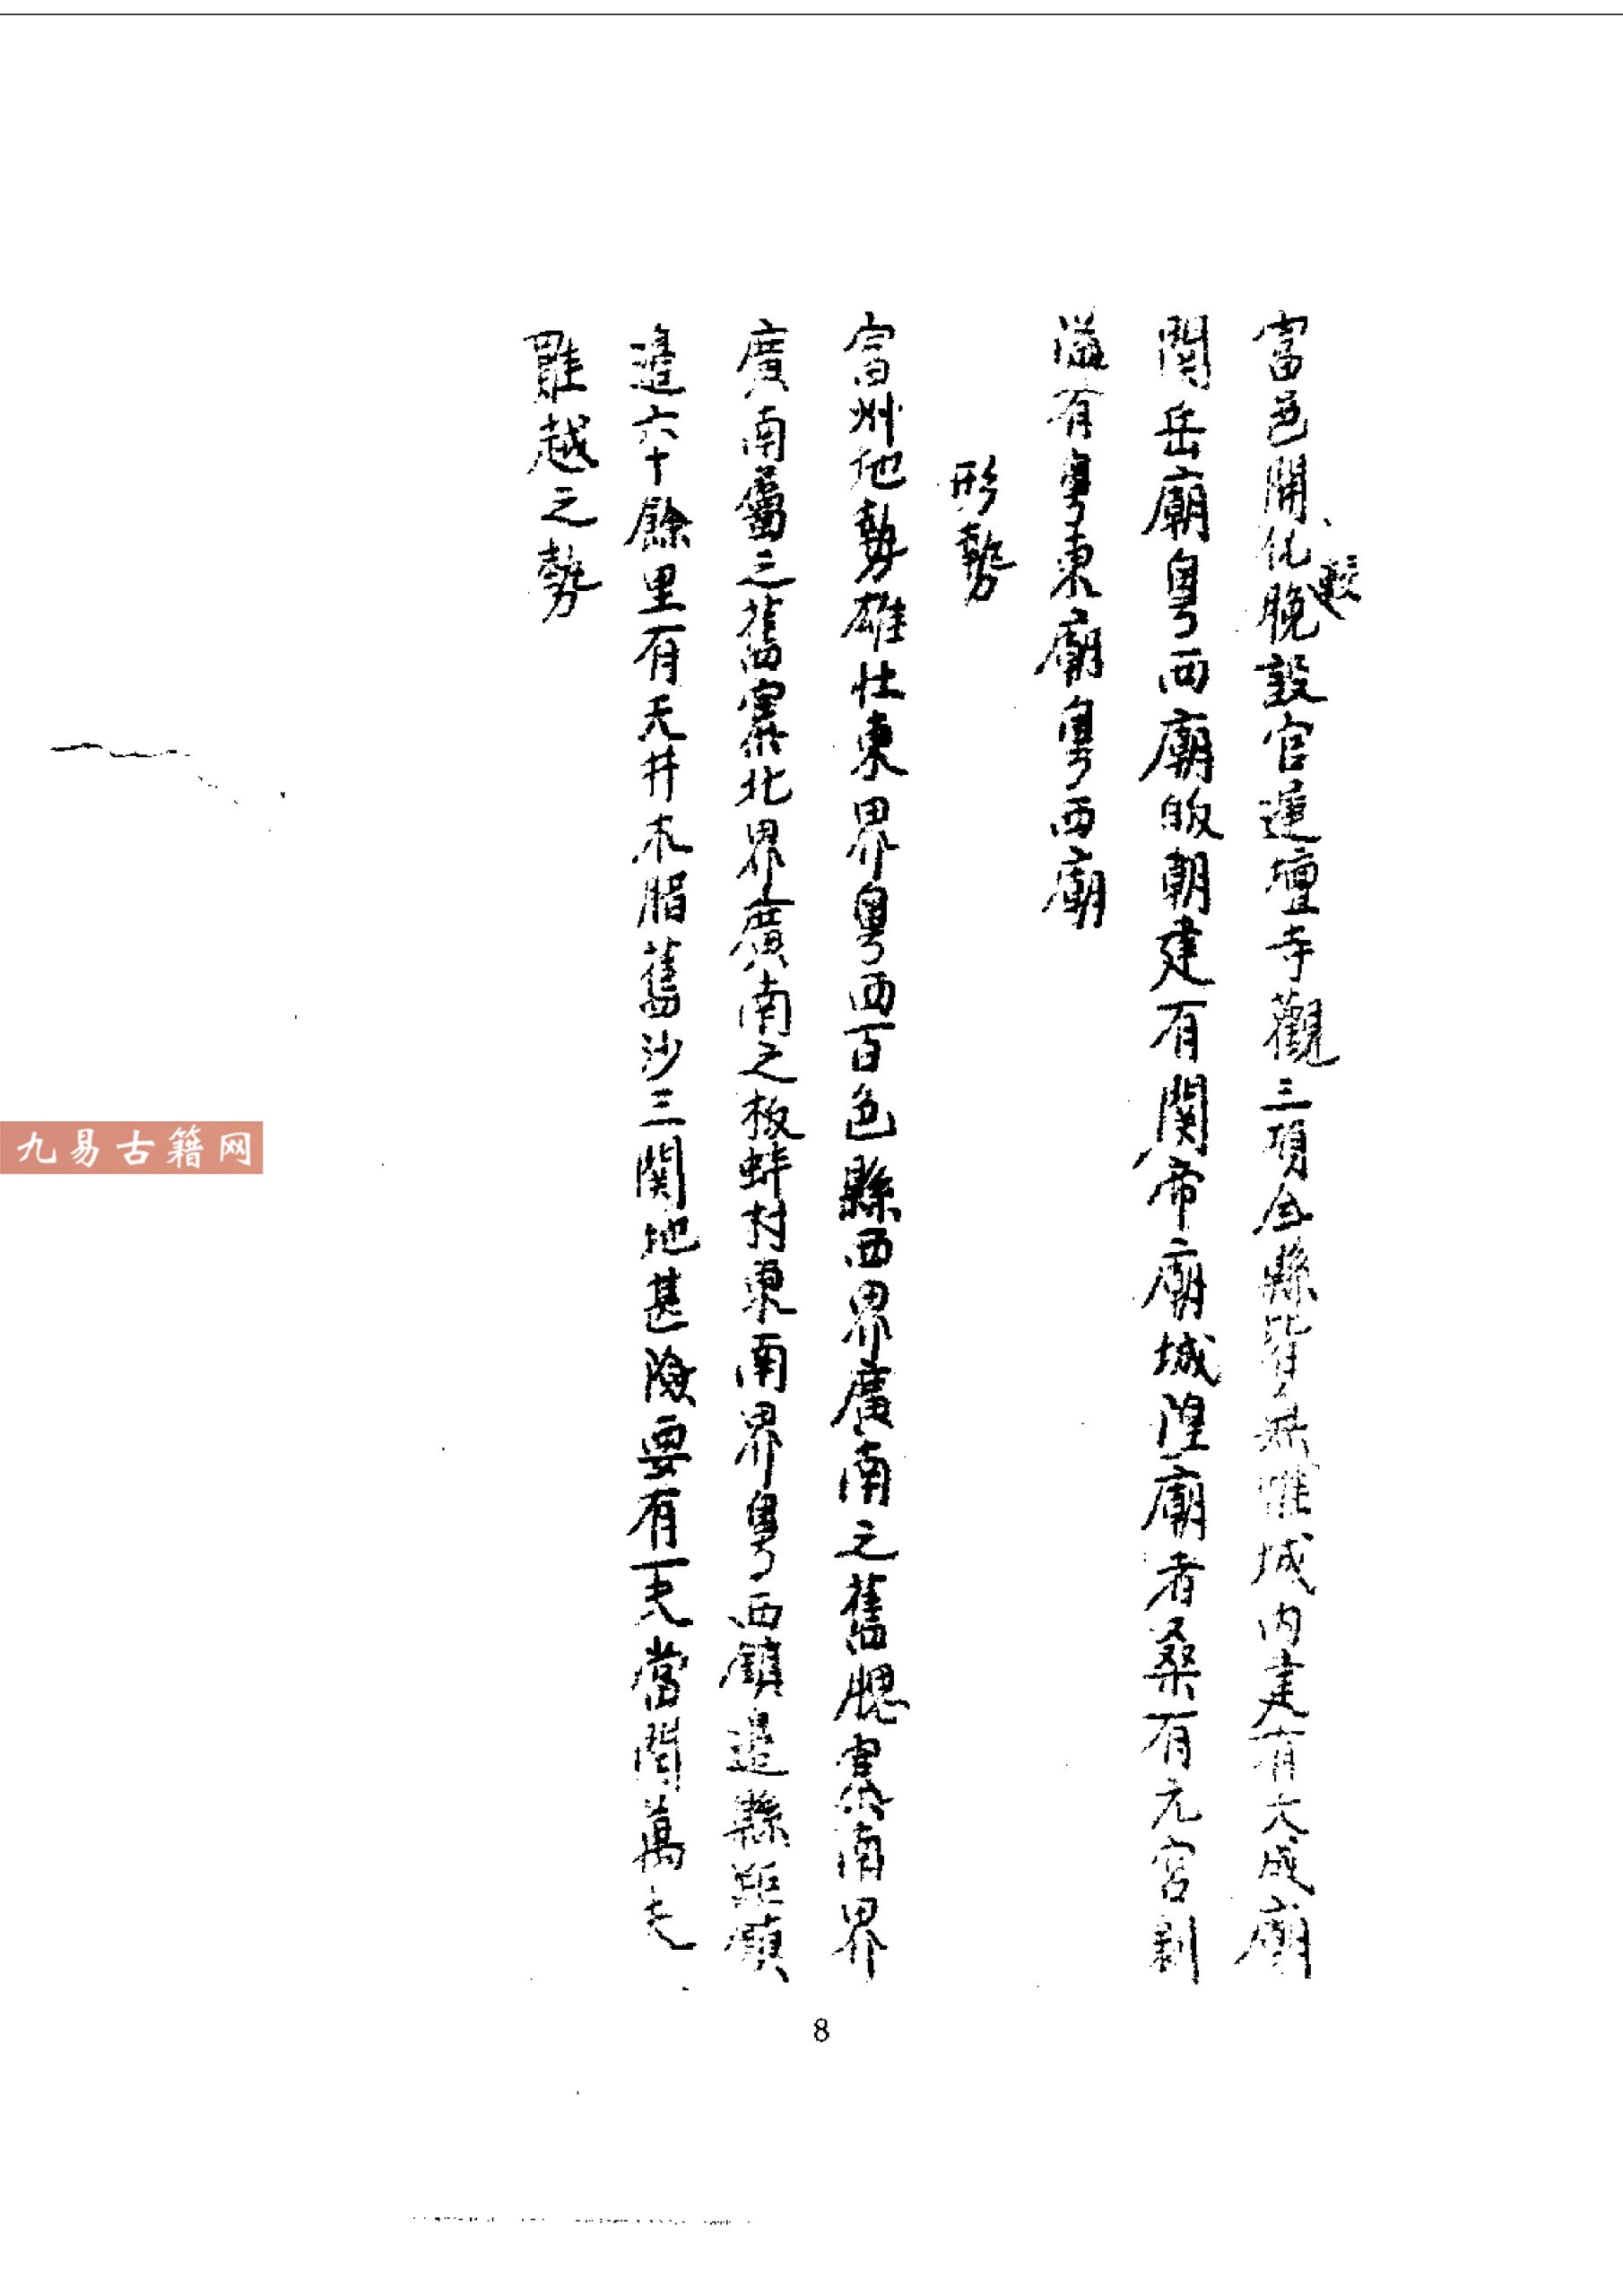 富邑開化較晚設官遲壇寺觀三項全縣皆無惟城内建有大成廟
関岳廟粤西廟皈朝建有関帝廟城隍廟者桑有元宮剥
溢有粤東廟粤西廟
形勢
富州地勢雄壯東界粤西百色縣西界廣南之舊腮寨南界
廣南屬之舊寨北界廣南之板蚌村東南界粤西鎮邊縣距鎮
邊六十餘里有天井木腊舊沙三関地甚險要有一夫當関萬夫
難越之勢
8
九易古籍网